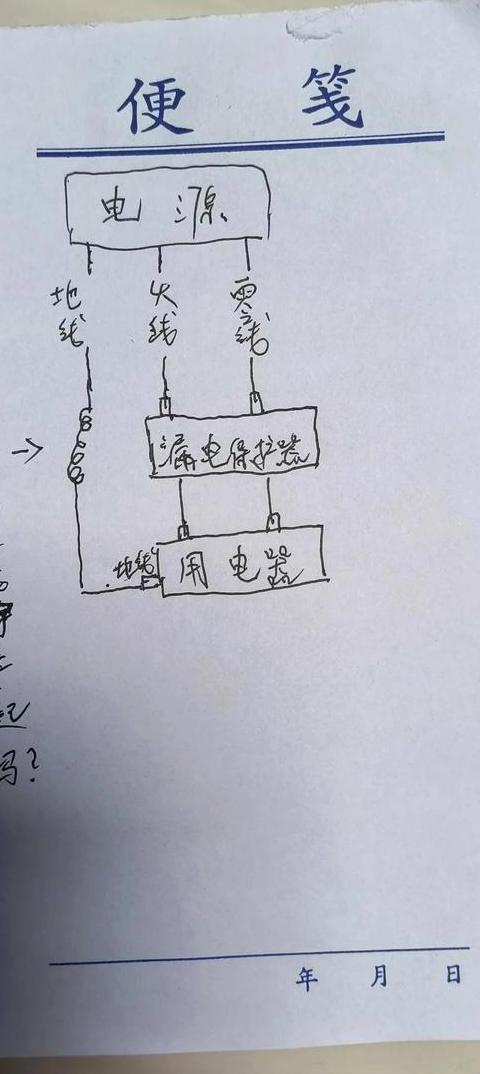 便 笺
电 源
地线 火线 零线
漏电保护器
地线 用电器
起
吗?
年 月 日